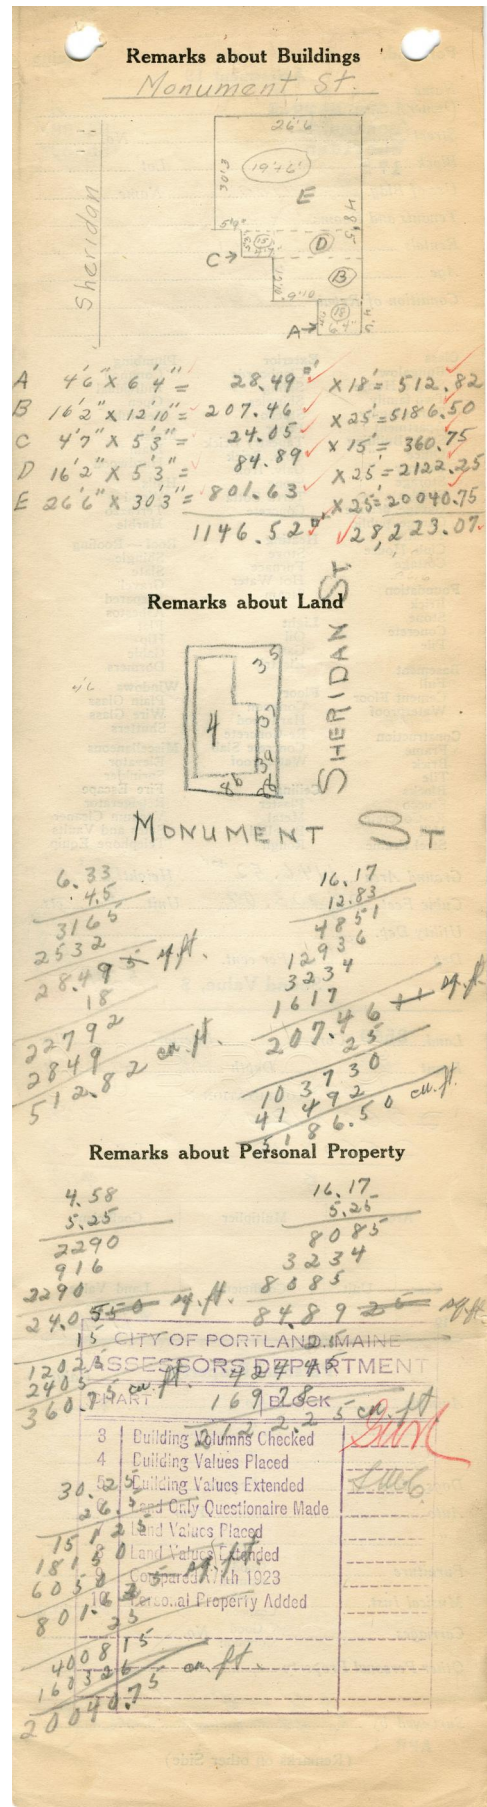 Remarks about Buildings
Monument St.
Sheridan
26'6
19'+6'
E
48'5
5'9"
15
C→
D
B
18
A→
A 4'6" X 6'4" = 28.49 □' X 18' = 512.82
B 16'2" X 12'10" = 207.46 X 25' = 5186.50
C 4'7" X 5'3" = 24.05 X 15' = 360.75
D 16'2" X 5'3" = 84.89 X 25' = 2122.25
E 26'6" X 30'3" = 801.63 X 25' = 20040.75
1146.52 □' 28,223.07
Remarks about Land
SHERIDAN ST
35
4
MONUMENT ST
6.33
4.5
3165
2532
28.495 sq. ft.
18
22792
2849
512.82 cu. ft.
16.17
12.83
4851
12936
3234
1617
207.4611 sq. ft.
25
103730
41492
5186.50 cu. ft.
Remarks about Personal Property
4.58
5.25
2290
916
2290
24.0550 sq. ft.
15
12025
2405
360.75 cu. ft.
16.17
5.25
8085
3234
8085
84.8925 sq. ft.
25
42445
16978
2122.25 cu. ft
CITY OF PORTLAND, MAINE
ASSESSORS DEPARTMENT
CHART BLOCK
3 Building Volumns Checked
4 Building Values Placed
5 Building Values Extended
6 Land Only Questionaire Made
7 Land Values Placed
8 Land Values Extended
9 Compared With 1923
10 Personal Property Added
30.25
26.5
15125
18150
6050
801.625 sq. ft
25
400815
160326
20040.75 cu. ft.